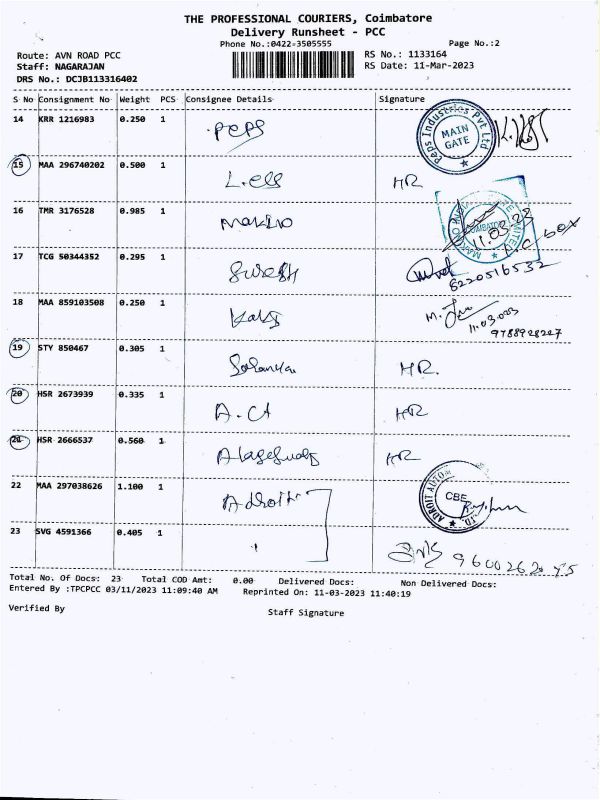 THE PROFESSIONAL COURIERS, Coimbatore
Delivery Runsheet - PCC
Phone No.:0422-3505555
Page No.:2
Route: AVN ROAD PCC
RS No.: 1133164
Staff: NAGARAJAN
RS Date: 11-Mar-2023
DRS No.: DCJB113316402
S No Consignment No Weight PCS Consignee Details Signature
14 KRR 1216983 0.250 1 Peps
Peps Industries Pvt Ltd
MAIN GATE
15 MAA 296740202 0.500 1 HR
16 TMR 3176528 0.985 1 Makino
11.03.23
17 TCG 50344352 0.295 1 Suresh
8220516532
18 MAA 859103508 0.250 1
11.03.023
9788928227
19 STY 850467 0.305 1 HR.
20 HSR 2673939 0.335 1 HR
21 HSR 2666537 0.560 1 HR
22 MAA 297038626 1.100 1 Adroit
CBE
23 SVG 4591366 0.405 1
Total No. Of Docs: 23 Total COD Amt: 0.00 Delivered Docs: Non Delivered Docs:
Entered By :TPCPCC 03/11/2023 11:09:40 AM Reprinted On: 11-03-2023 11:40:19
Verified By
Staff Signature